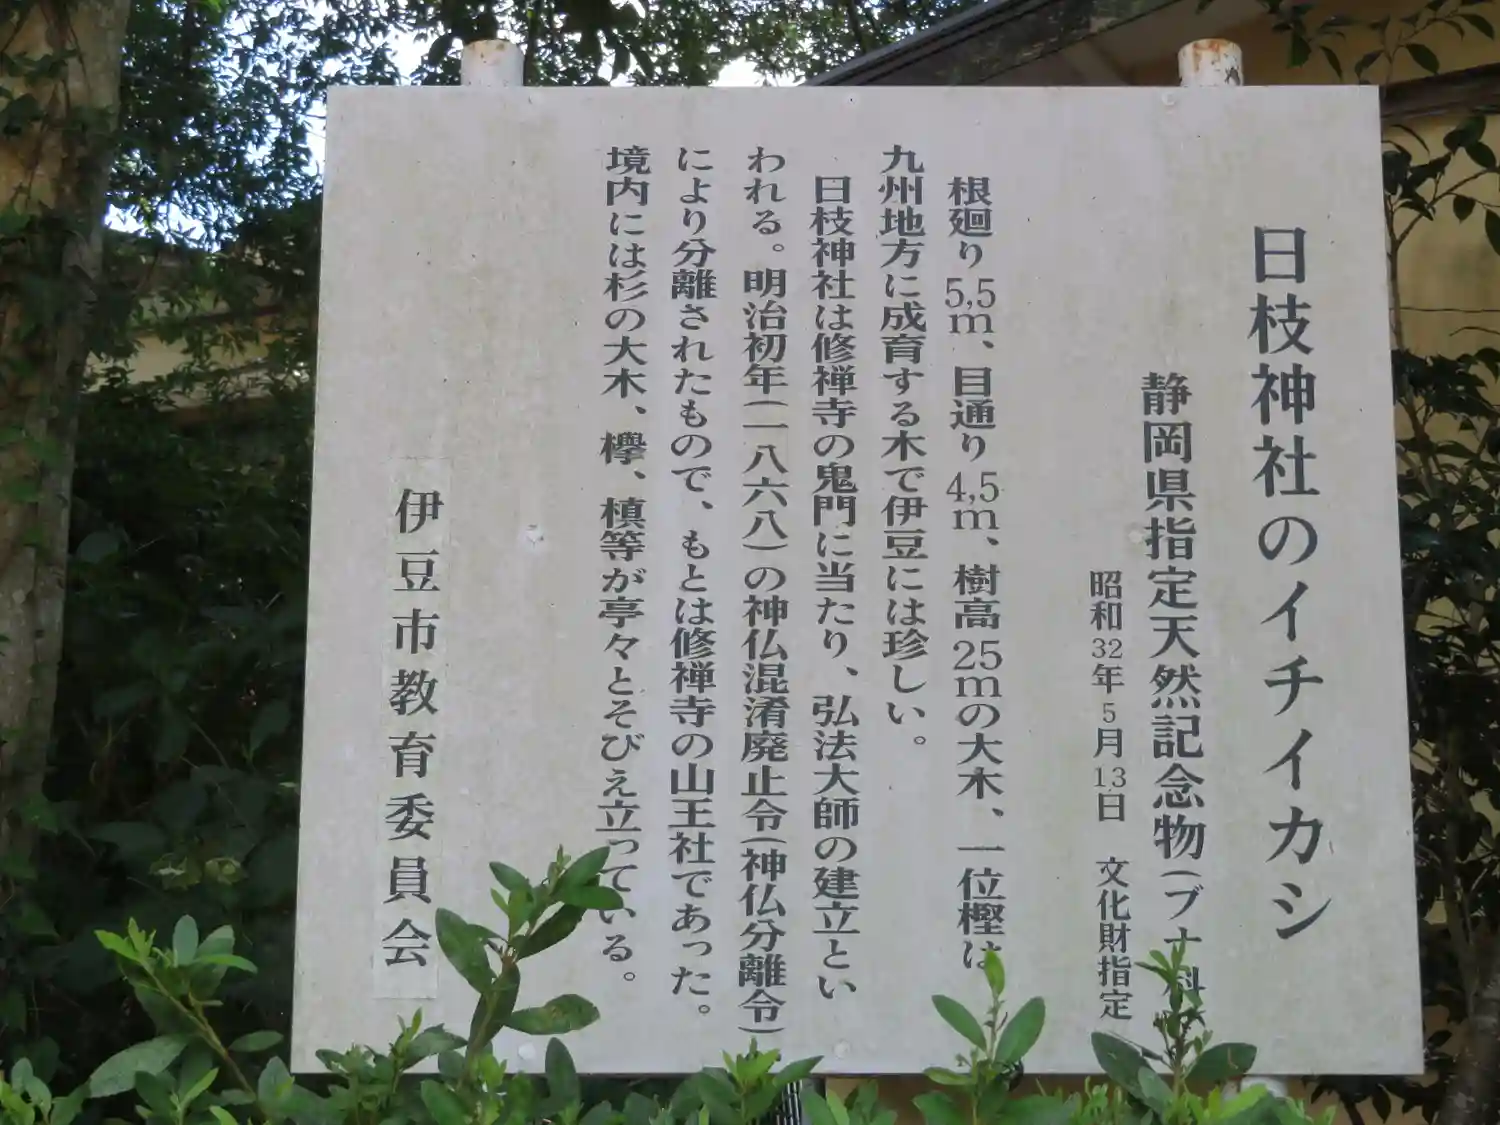 日枝神社のイチイカシ
静岡県指定天然記念物(ブナ科
昭和32年5月13日 文化財指定
根廻り5,5m、目通り4,5m、樹高25mの大木、一位樫は
九州地方に成育する木で伊豆には珍しい。
日枝神社は修禅寺の鬼門に当たり、弘法大師の建立とい
われる。明治初年(一八六八)の神仏混淆廃止令(神仏分離令)
により分離されたもので、もとは修禅寺の山王社であった。
境内には杉の大木、欅、槙等が亭々とそびえ立っている。
伊豆市教育委員会